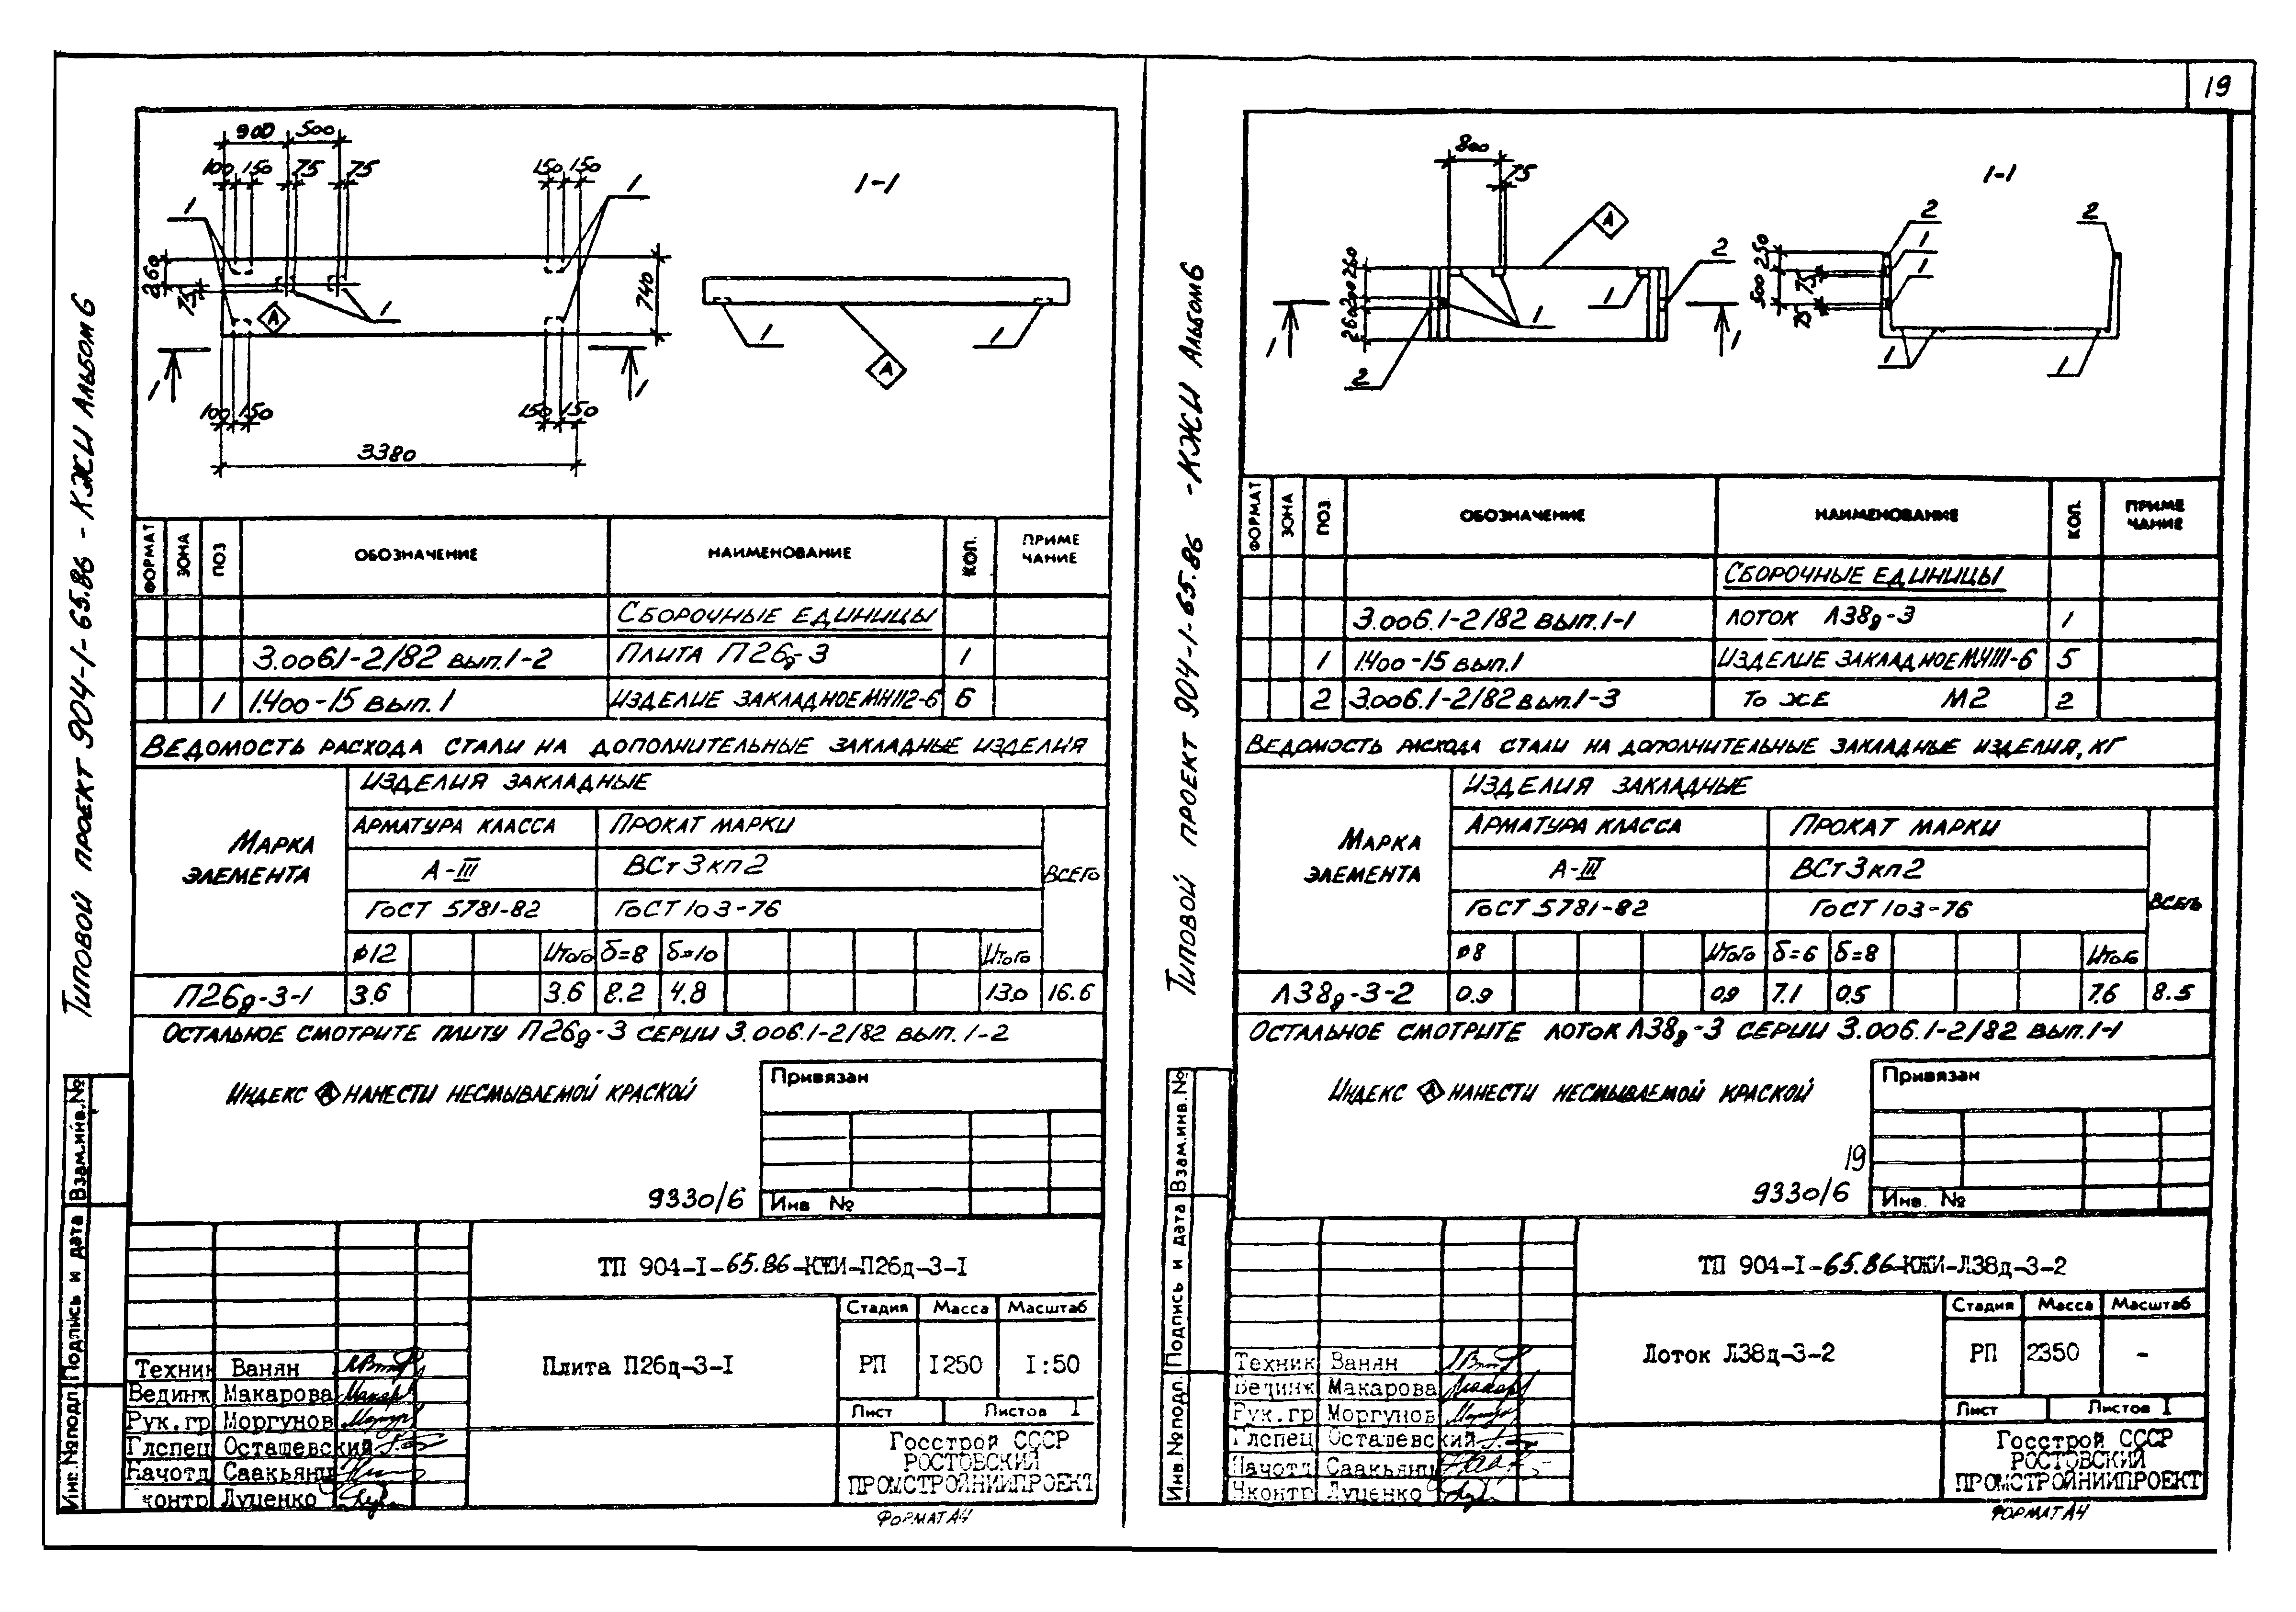 19
Типовой проект 904-1-65.86 - КЖИ Альбом 6
900 500
100 150 75 75 150 150
1 1
1-1
260
75
740
А
1
1 1
А
1 1
100 150 150 150
3380
ФОРМАТ ЗОНА ПОЗ ОБОЗНАЧЕНИЕ НАИМЕНОВАНИЕ КОЛ. ПРИМЕ
ЧАНИЕ
СБОРОЧНЫЕ ЕДИНИЦЫ
3.006.1-2/82 вып.1-2 ПЛИТА П26д-3 1
1 1.400-15 вып.1 ИЗДЕЛИЕ ЗАКЛАДНОЕ МН112-6 6
ВЕДОМОСТЬ РАСХОДА СТАЛИ НА ДОПОЛНИТЕЛЬНЫЕ ЗАКЛАДНЫЕ ИЗДЕЛИЯ
МАРКА
ЭЛЕМЕНТА
ИЗДЕЛИЯ ЗАКЛАДНЫЕ
АРМАТУРА КЛАССА ПРОКАТ МАРКИ
А-III ВСт3кп2 ВСЕГО
ГОСТ 5781-82 ГОСТ 103-76
ø12 Итого δ=8 δ=10 Итого
П26д-3-1 3.6 3.6 8.2 4.8 13.0 16.6
ОСТАЛЬНОЕ СМОТРИТЕ ПЛИТУ П26д-3 СЕРИИ 3.006.1-2/82 ВЫП. 1-2
ИНДЕКС А НАНЕСТИ НЕСМЫВАЕМОЙ КРАСКОЙ
Привязан
9330/6
Инв №
Инв.№подл. Подпись и дата Взам.инв.№
ТП 904-I-65.86-КЖИ-П26д-3-I
Плита П26д-3-I
Стадия Масса Масштаб
РП I250 I:50
Лист Листов I
Госстрой СССР
РОСТОВСКИЙ
ПРОМСТРОЙНИИПРОЕКТ
Техник Ванян
Вединж Макарова
Рук.гр Моргунов
Глспец Осташевский
Начотд Саакьянц
контр Луценко
ФОРМАТ А4
Типовой проект 904-1-65.86 - КЖИ Альбом 6
800
75
А
1-1
2
2
1
1
2
260
200
260
250
500
75
75
1
1
1 1
2
1 1
ФОРМАТ ЗОНА ПОЗ. ОБОЗНАЧЕНИЕ НАИМЕНОВАНИЕ КОЛ. ПРИМЕ
ЧАНИЕ
СБОРОЧНЫЕ ЕДИНИЦЫ
3.006.1-2/82 вып.1-1 ЛОТОК Л38д-3 1
1 1.400-15 вып.1 ИЗДЕЛИЕ ЗАКЛАДНОЕ МН111-6 5
2 3.006.1-2/82 вып.1-3 ТО ЖЕ М2 2
ВЕДОМОСТЬ РАСХОДА СТАЛИ НА ДОПОЛНИТЕЛЬНЫЕ ЗАКЛАДНЫЕ ИЗДЕЛИЯ, КГ
МАРКА
ЭЛЕМЕНТА
ИЗДЕЛИЯ ЗАКЛАДНЫЕ
АРМАТУРА КЛАССА ПРОКАТ МАРКИ
А-III ВСт3кп2
ГОСТ 5781-82 ГОСТ 103-76
ø8 Итого δ=6 δ=8 Итого
Л38д-3-2 0.9 0.9 7.1 0.5 7.6 8.5
ОСТАЛЬНОЕ СМОТРИТЕ ЛОТОК Л38д-3 СЕРИИ 3.006.1-2/82 ВЫП.1-1
ИНДЕКС А НАНЕСТИ НЕСМЫВАЕМОЙ КРАСКОЙ
Привязан
19
9330/6
Инв. №
Инв.№подл. Подпись и дата Взам.инв.№
ТП 904-I-65.86-КЖИ-Л38д-3-2
Лоток Л38д-3-2
Стадия Масса Масштаб
РП 2350 -
Лист Листов I
Госстрой СССР
РОСТОВСКИЙ
ПРОМСТРОЙНИИПРОЕКТ
Техник Ванян
Вединж Макарова
Рук.гр Моргунов
Глспец Осташевский
Начотд Саакьянц
Нконтр Луценко
ФОРМАТ А4